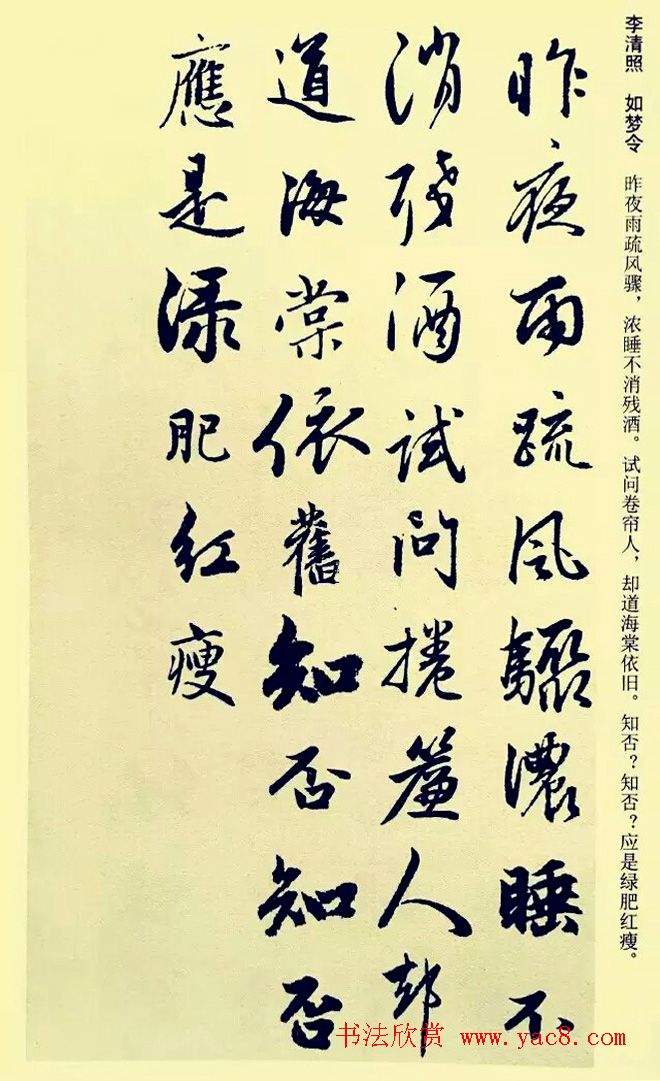 李清照 如梦令 昨夜雨疏风骤，浓睡不消残酒。试问卷帘人，却道海棠依旧。知否？知否？应是绿肥红瘦。
昨夜雨疏风驟濃睡不
消残酒試問捲簾人却
道海棠依舊知否知否
應是渌肥紅瘦
书法欣赏 www.yac8.com